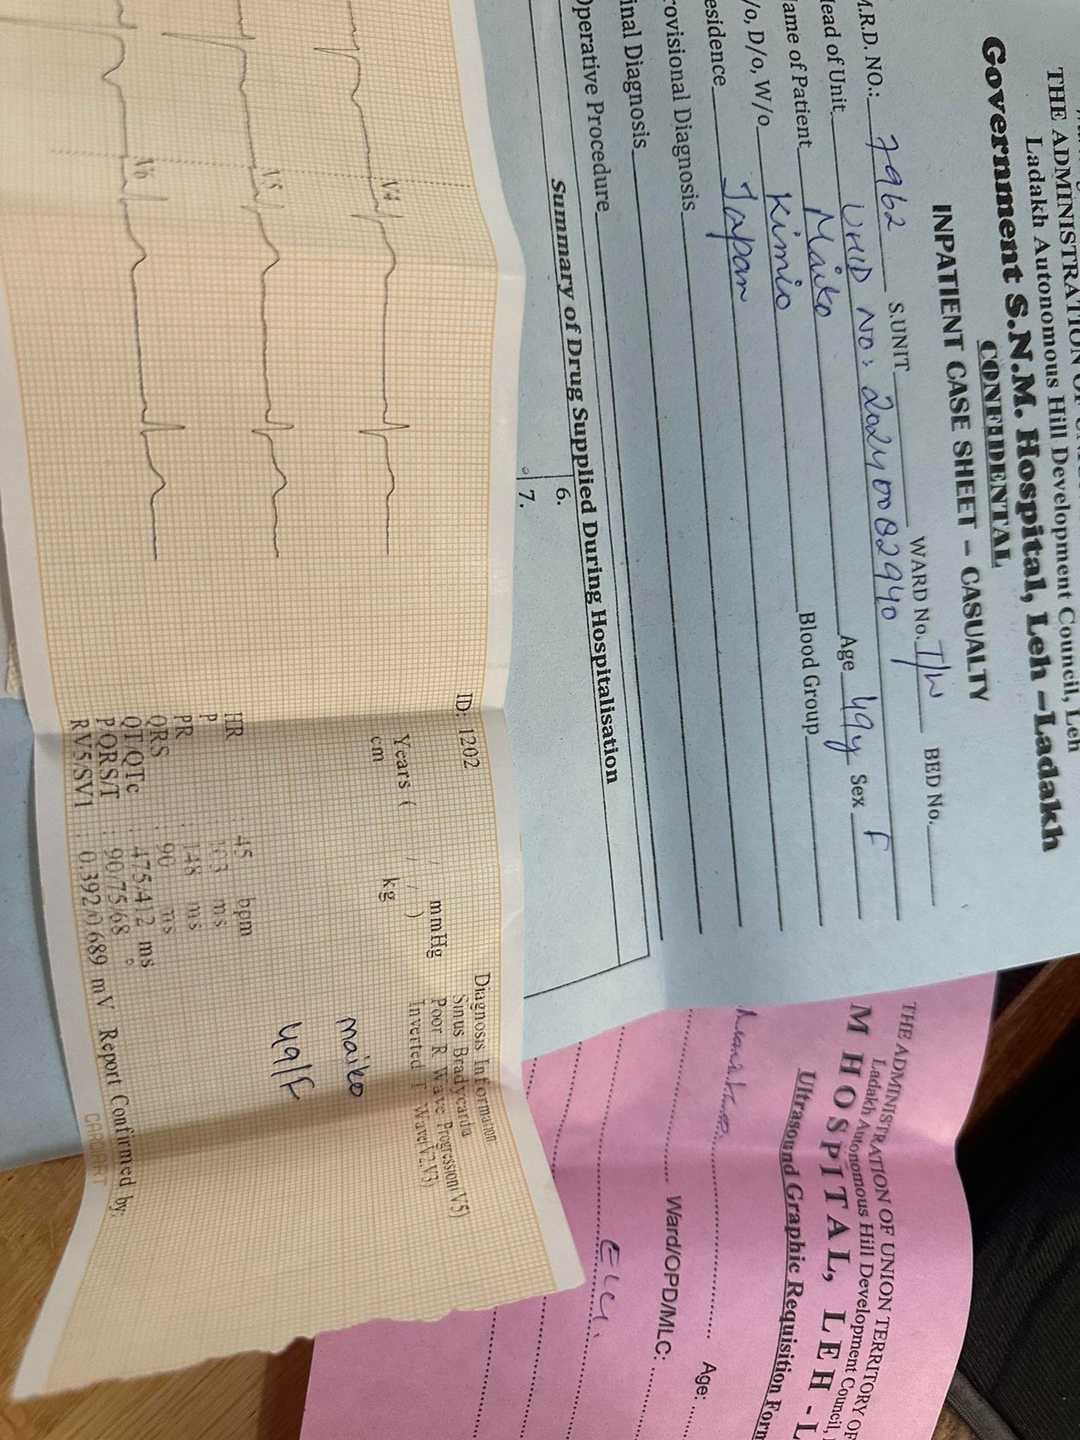 THE ADMINISTRATION OF
Ladakh Autonomous Hill Development Council, Leh
Government S.N.M. Hospital, Leh –Ladakh
CONFIDENTAL
INPATIENT CASE SHEET – CASUALTY
M.R.D. NO.: 7962 S.UNIT WARD No. T/W BED No.
Head of Unit UHID No: 20240082940
Name of Patient Maiko Age 49y Sex F
/o, D/o, W/o Kimio Blood Group
Residence Japan
Provisional Diagnosis
inal Diagnosis
Operative Procedure
Summary of Drug Supplied During Hospitalisation
6.
7.
V4
V5
V6
ID: 1202
Years ( / / ) mmHg
cm kg
HR : 45 bpm
P : 103 ms
PR : 148 ms
QRS : 90 ms
QT/QTc : 475/412 ms
P/QRS/T : 90/75/68 °
RV5/SV1 : 0.392/0.689 mV
Diagnosis Information
Sinus Bradycardia
Poor R Wave Progression(V5)
Inverted T Wave(V2,V3)
maiko
49/F
Report Confirmed by:
CARDIART
THE ADMINISTRATION OF UNION TERRITORY OF
Ladakh Autonomous Hill Development Council,
M HOSPITAL, LEH - L
Ultrasound Graphic Requisition Form
Age:
Ward/OPD/MLC: